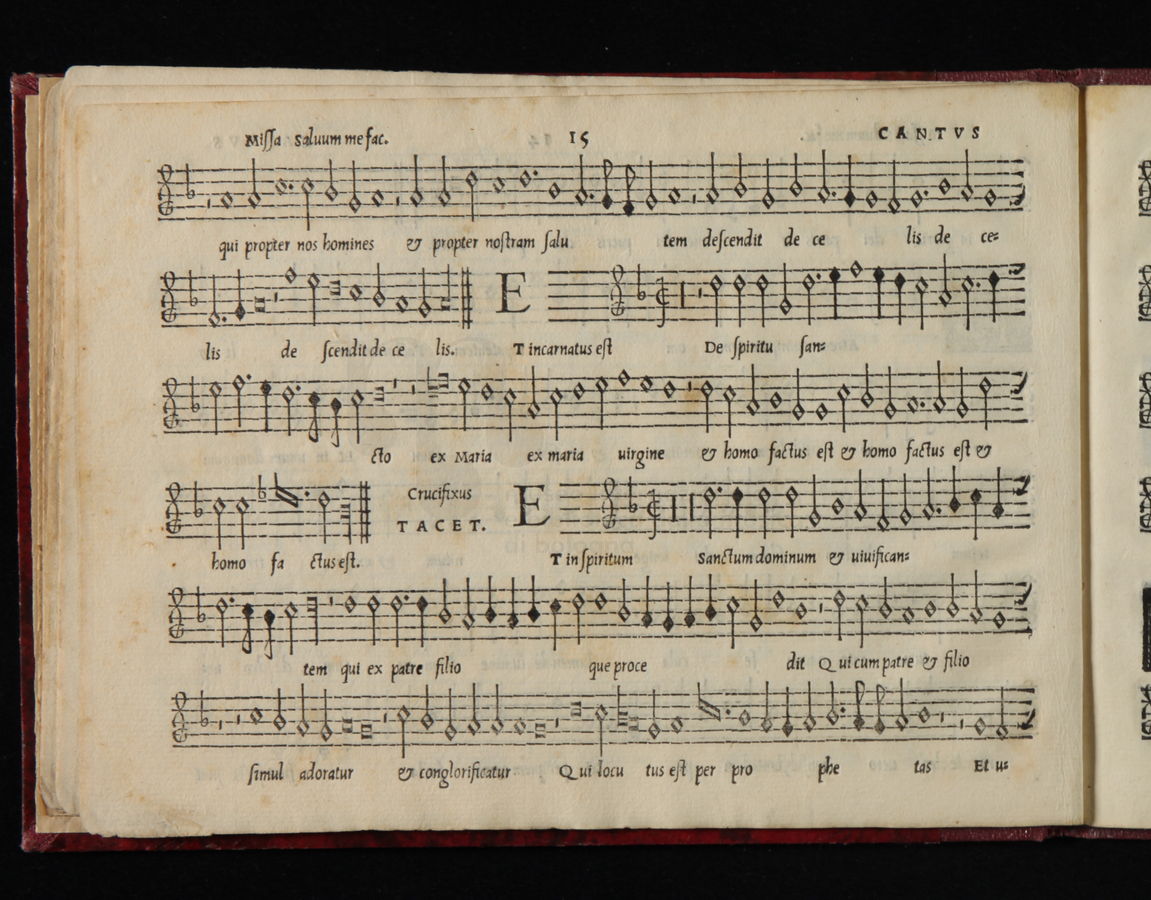 Miſſa ſaluum me fac. 15 CANTVS
qui propter nos homines & propter noſtram ſalu tem deſcendit de ce lis de ce=
lis de ſcendit de ce lis. E T incarnatus eſt De ſpiritu ſan=
cto ex Maria ex maria uirgine & homo factus eſt & homo factus eſt &
homo fa ctus eſt. Crucifixus TACET. E T in ſpiritum Sanctum dominum & uiuifican=
tem qui ex patre filio que proce dit Qui cum patre & filio
ſimul adoratur & conglorificatur Qui locu tus eſt per pro phe tas Et u=